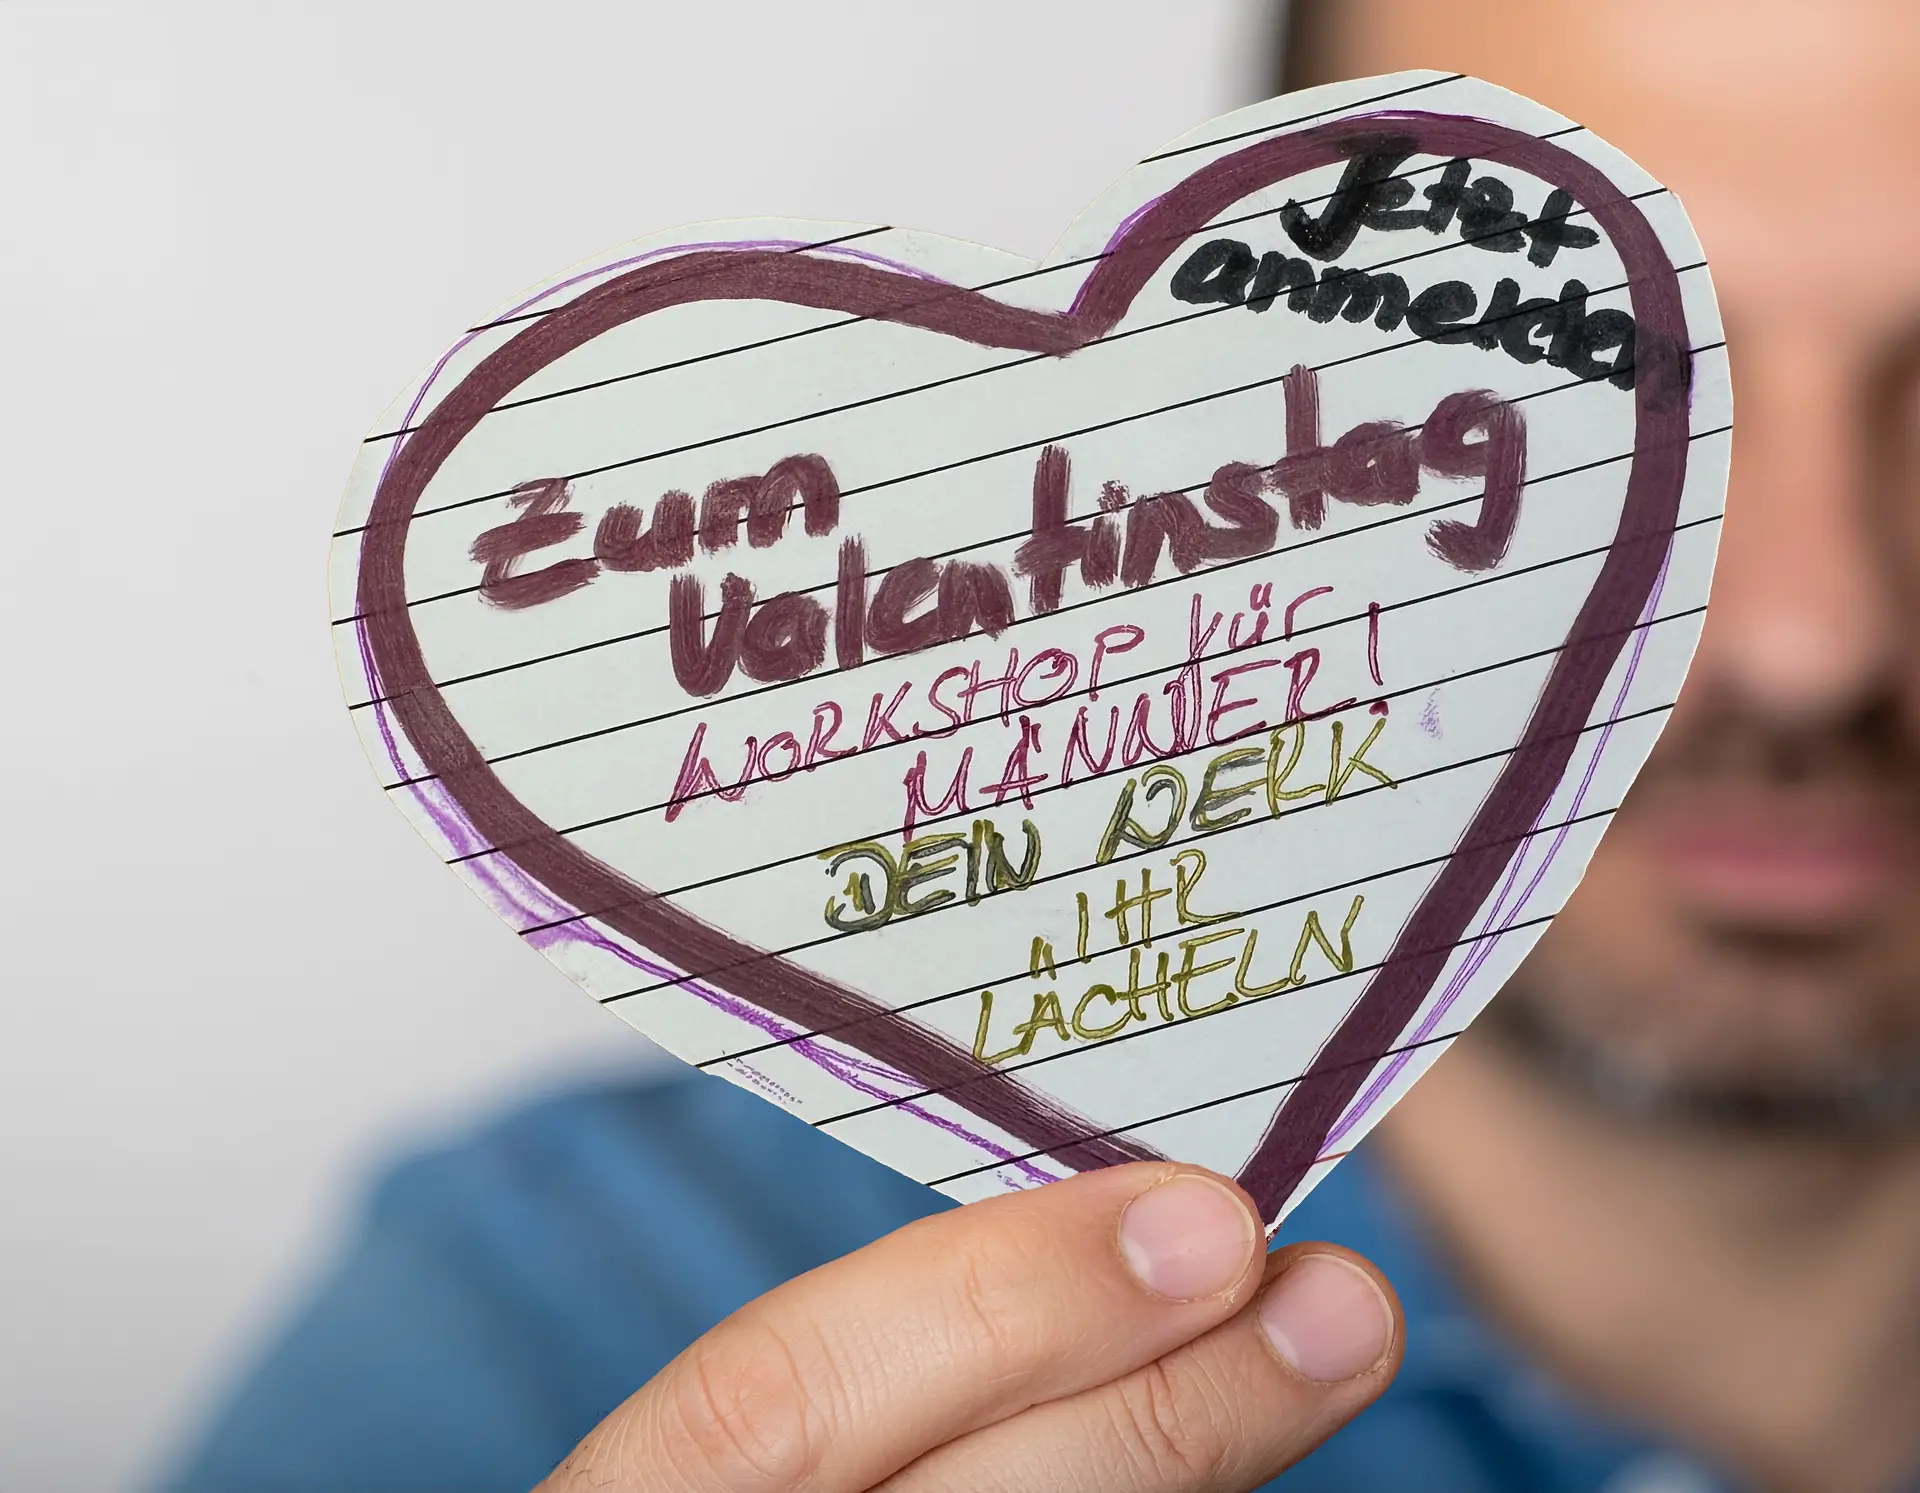 Jetzt
anmelden
Zum
Valentinstag
WORKSHOP für
MÄNNER!
DEIN WERK
IHR
LÄCHELN